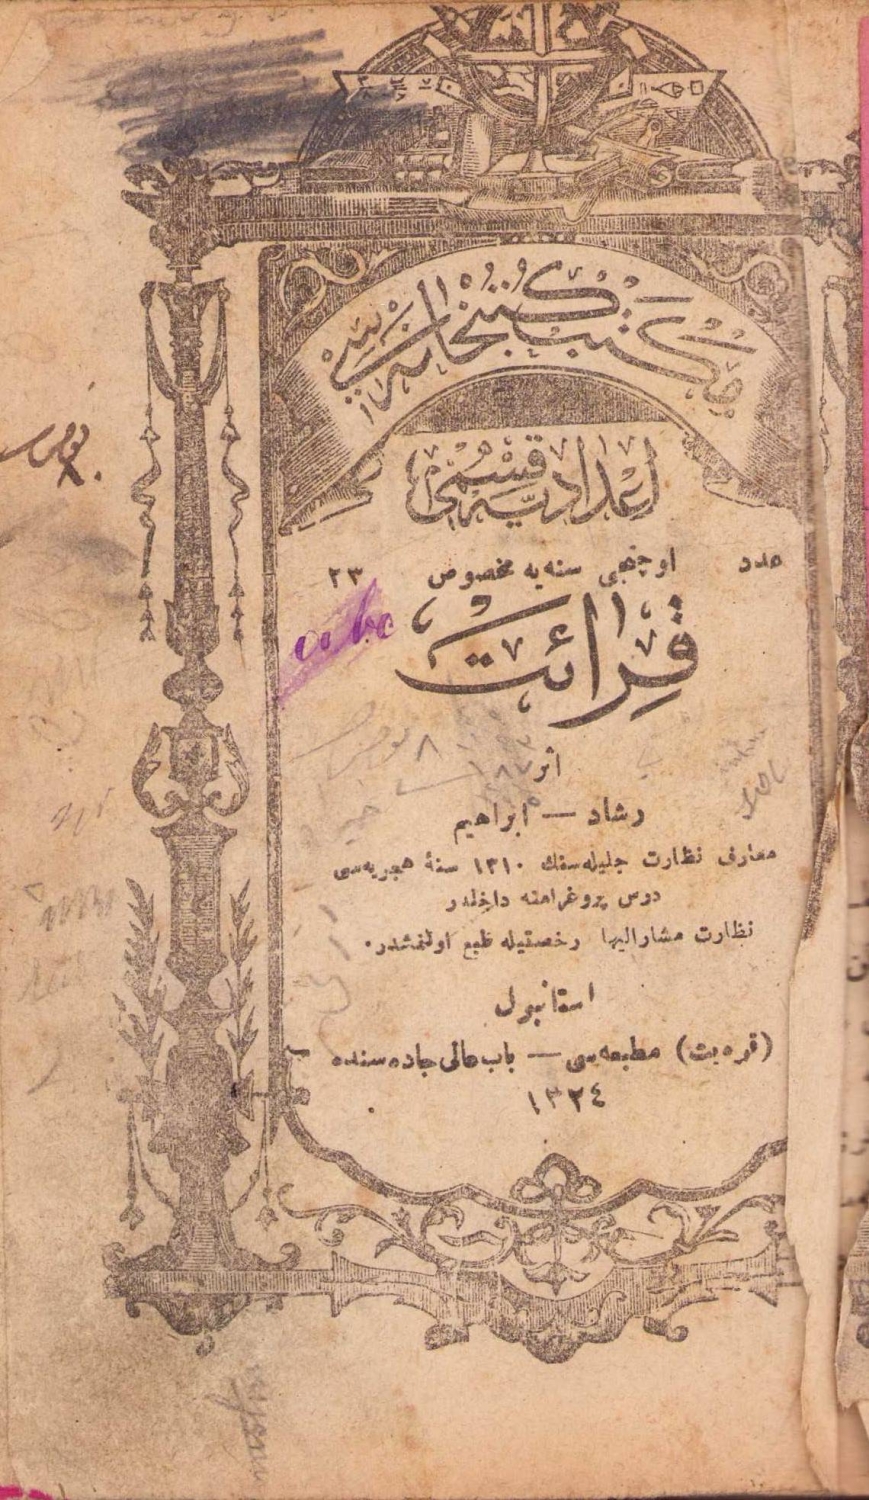 مكتب كتبخانه‌سی
اعدادیه قسمی
عدد اوچنجی سنه‌یه مخصوص ٢٣
abc
قرائت
اثر
رشاد — ابراهیم
معارف نظارت جلیله‌سنك ١٣١٠ سنهٔ هجریه‌سی
درس پروغرامنه داخلدر
نظارت مشارالیها رخصتیله طبع اولنمشدر.
استانبول
(قره‌بت) مطبعه‌سی — باب عالی جاده‌سنده
١٣٢٤